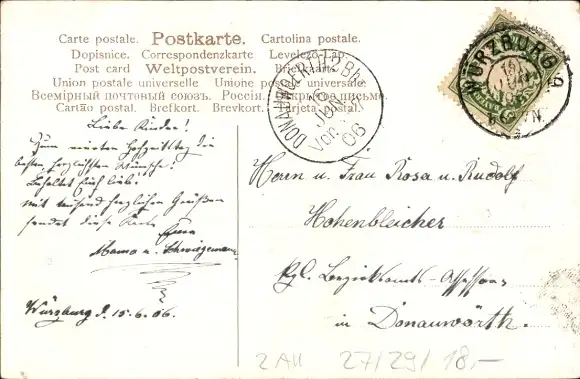 Carte postale. Postkarte. Cartolina postale.
Dopisnice. Correspondenzkarte Levelező-Lap.
Post card Weltpostverein. Briefkaart
Union postale universelle Unione postale universale.
Всемірный почтовый союзъ. Россія. Открытое письмо.
Cartão postal. Brefkort. Brevkort. Tarjeta postal.
DONAUWOERTH 2 Bhf.
JUN.
Vor.
06
WÜRZBURG
Liebe Kinder!
Zum ersten Hochzeitstag die
besten herzlichsten Wünsche!
Behaltet Euch lieb!
mit tausend herzlichen Grüßen
sendet diese Karte
Eure
Mama u. Schwiegermama
Würzburg d. 15.6.06.
Herrn u. Frau Rosa u. Rudolf
Hohenbleicher
Kgl. Bezirksamts-Assessor
in Donauwörth.
2 All 27/29/ 18.-